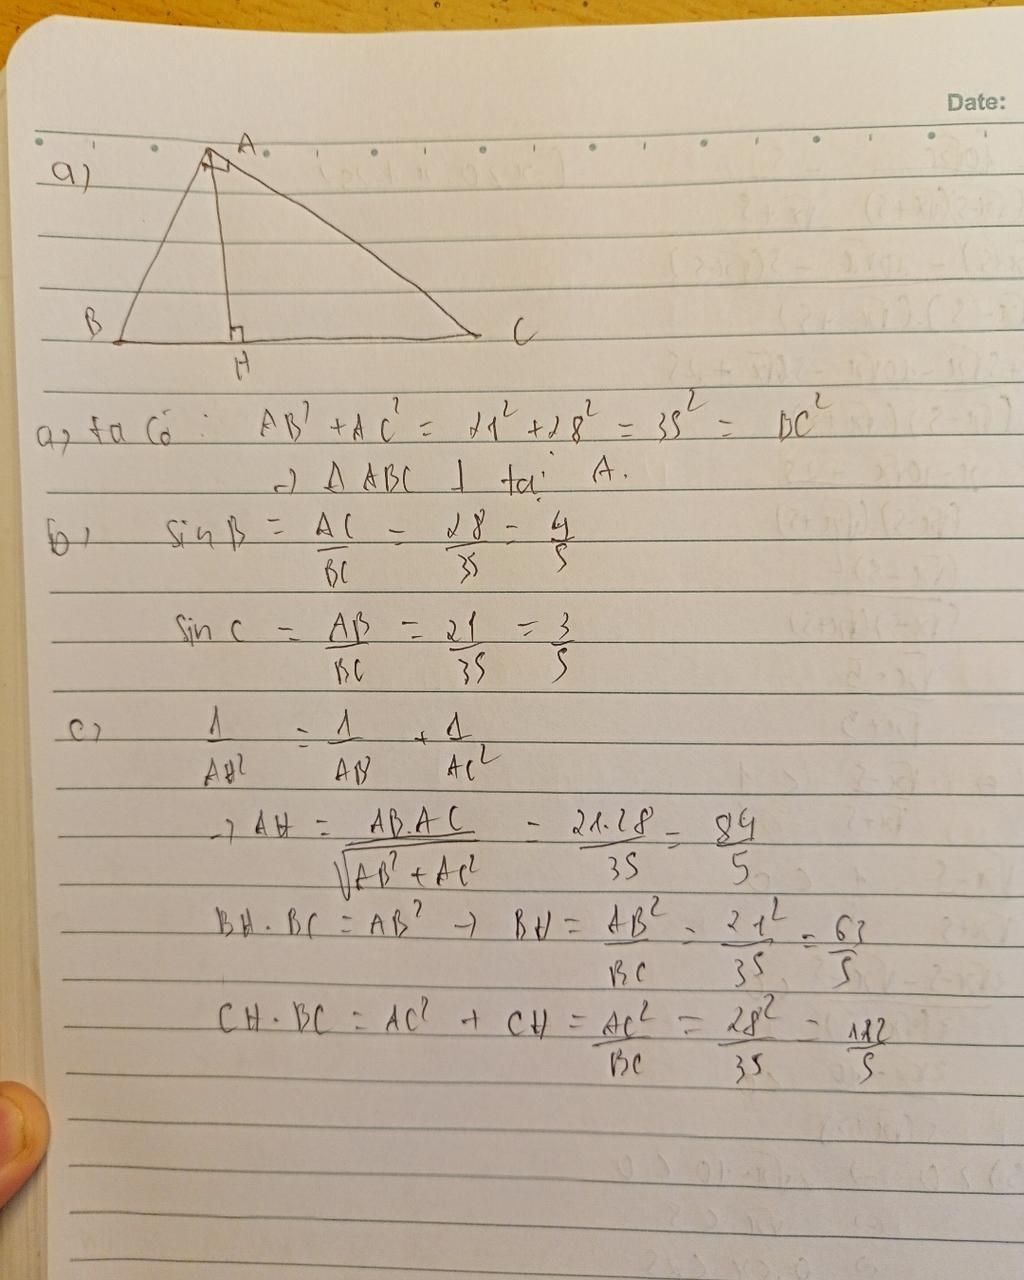 Date:
a)
A
B
H
C
a, ta có : AB² + AC² = 21² + 28² = 35² = BC²
→ Δ ABC ⊥ tại A.
b, sin B = AC/BC = 28/35 = 4/5
Sin C = AB/BC = 21/35 = 3/5
c, 1/AH² = 1/AB² + 1/AC²
→ AH = AB.AC/√(AB² + AC²) = 21.28/35 = 84/5
BH . BC = AB² → BH = AB²/BC = 21²/35 = 63/5
CH . BC = AC² → CH = AC²/BC = 28²/35 = 112/5